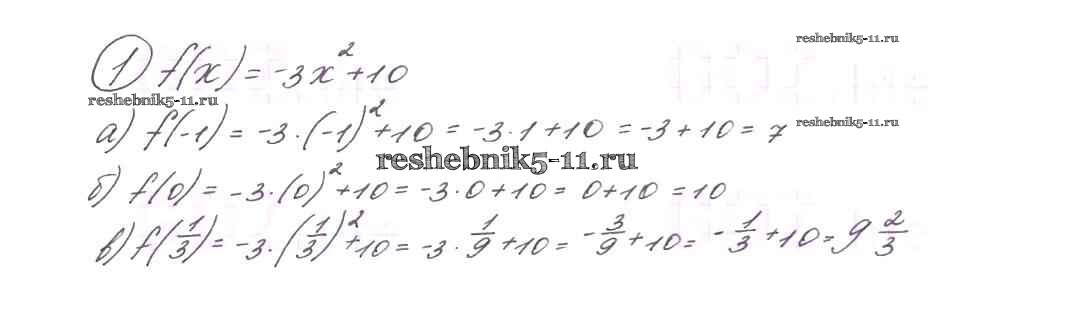 reshebnik5-11.ru
1 f(x) = -3x² + 10
reshebnik5-11.ru
а) f(-1) = -3·(-1)² + 10 = -3·1 + 10 = -3 + 10 = 7
reshebnik5-11.ru
reshebnik5-11.ru
б) f(0) = -3·(0)² + 10 = -3·0 + 10 = 0 + 10 = 10
в) f(1/3) = -3·(1/3)² + 10 = -3·1/9 + 10 = -3/9 + 10 = -1/3 + 10 = 9 2/3